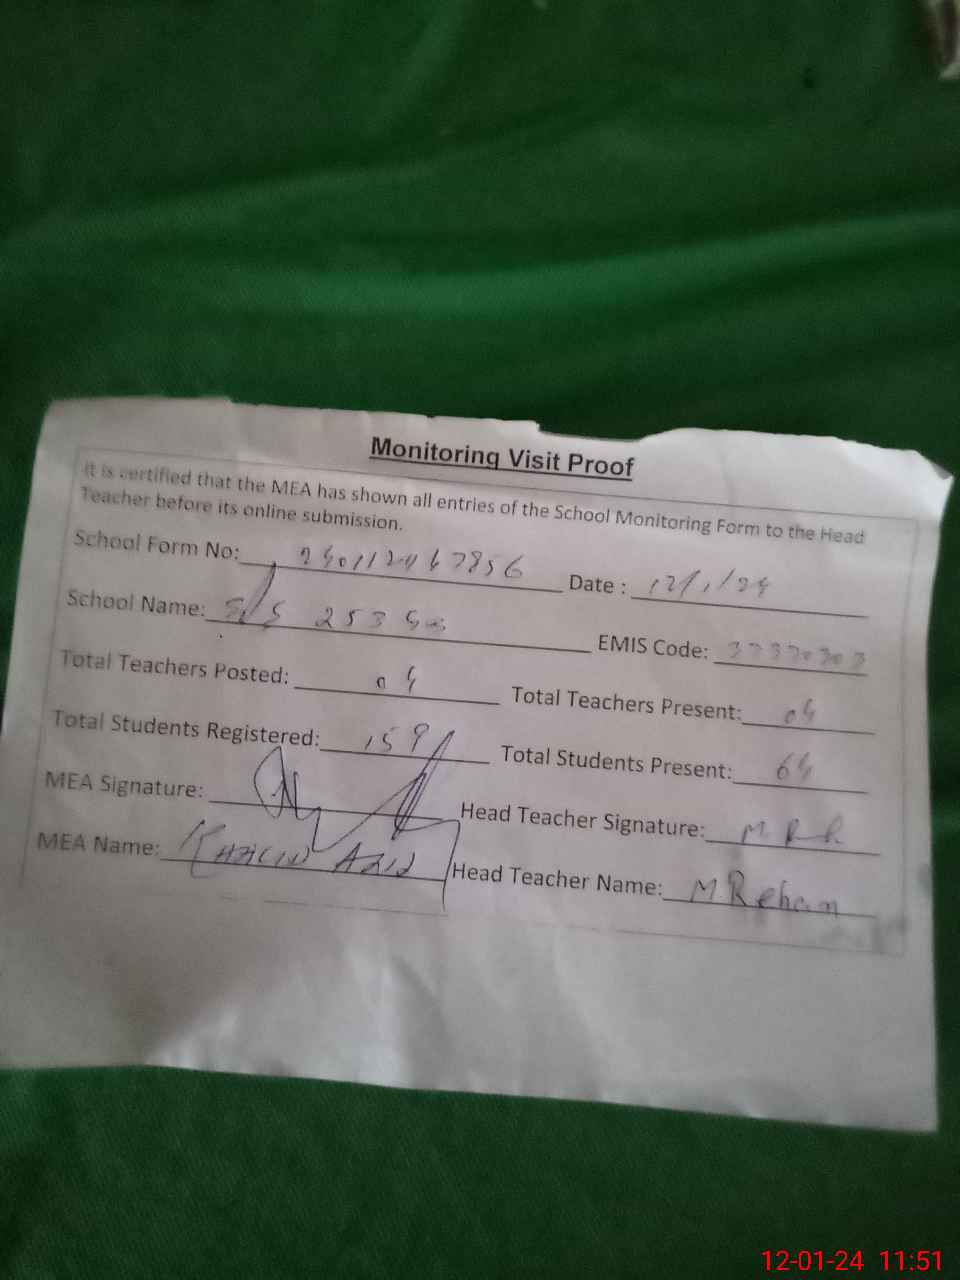 Monitoring Visit Proof
It is certified that the MEA has shown all entries of the School Monitoring Form to the Head
Teacher before its online submission.
School Form No: Date : 12/1/24
School Name: EMIS Code:
Total Teachers Posted: 04 Total Teachers Present: 04
Total Students Registered: 159 Total Students Present: 64
MEA Signature: Head Teacher Signature:
MEA Name: Head Teacher Name: M.Rehan
12-01-24 11:51